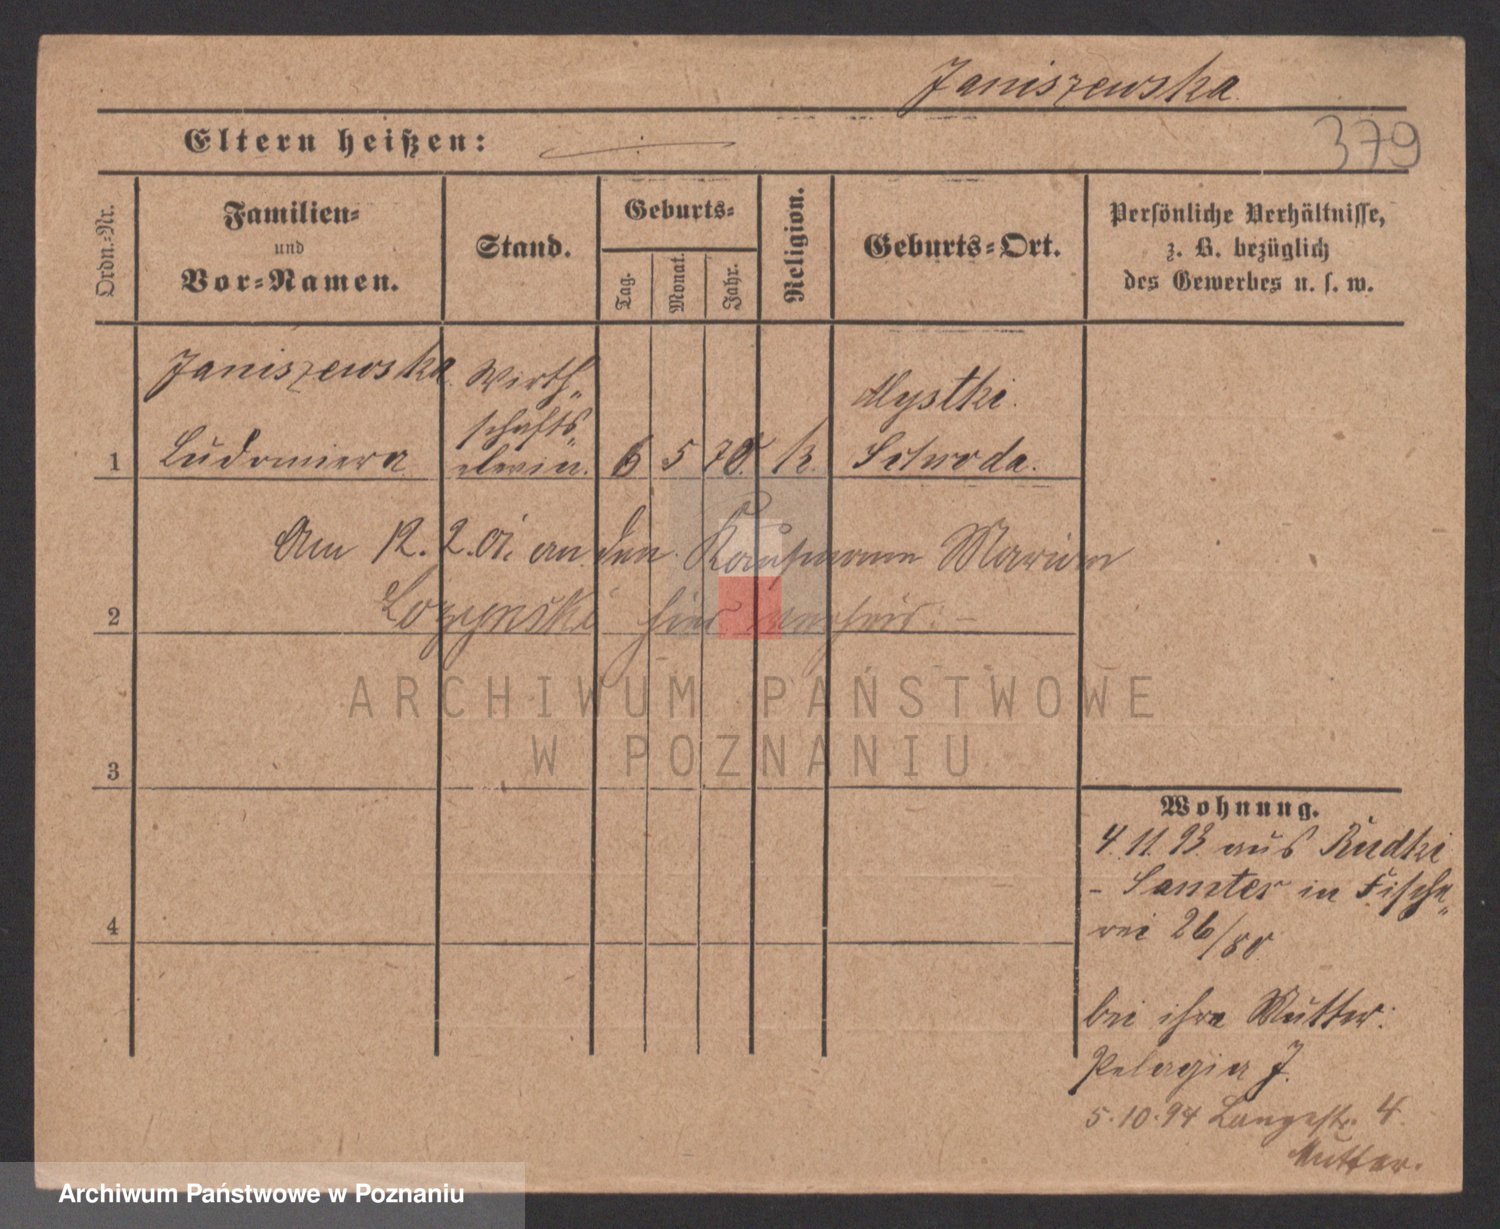 Janiszewska
379
Eltern heißen:
Ordn.-Nr.
Familien-
und
Vor-Namen.
Stand.
Geburts-
Tag.
Monat.
Jahr.
Religion.
Geburts-Ort.
Persönliche Verhältnisse,
z. B. bezüglich
des Gewerbes u. s. w.
Janiszewska Wirth-
schafts
1 Ludomira elevin. 6 5 70. k. Mystki
Schroda.
Am 12. 2. 01. an den Kaufmann Marian
2 hier verheir:
ARCHIWUM PAŃSTWOWE
W POZNANIU
3
4
Wohnung.
4.11.93 aus Rudki
- Samter in Fische-
rei 26/80
bei ihre Mutter:
Pelagia J.
5.10.94 Langestr. 4.
Mutter.
Archiwum Państwowe w Poznaniu